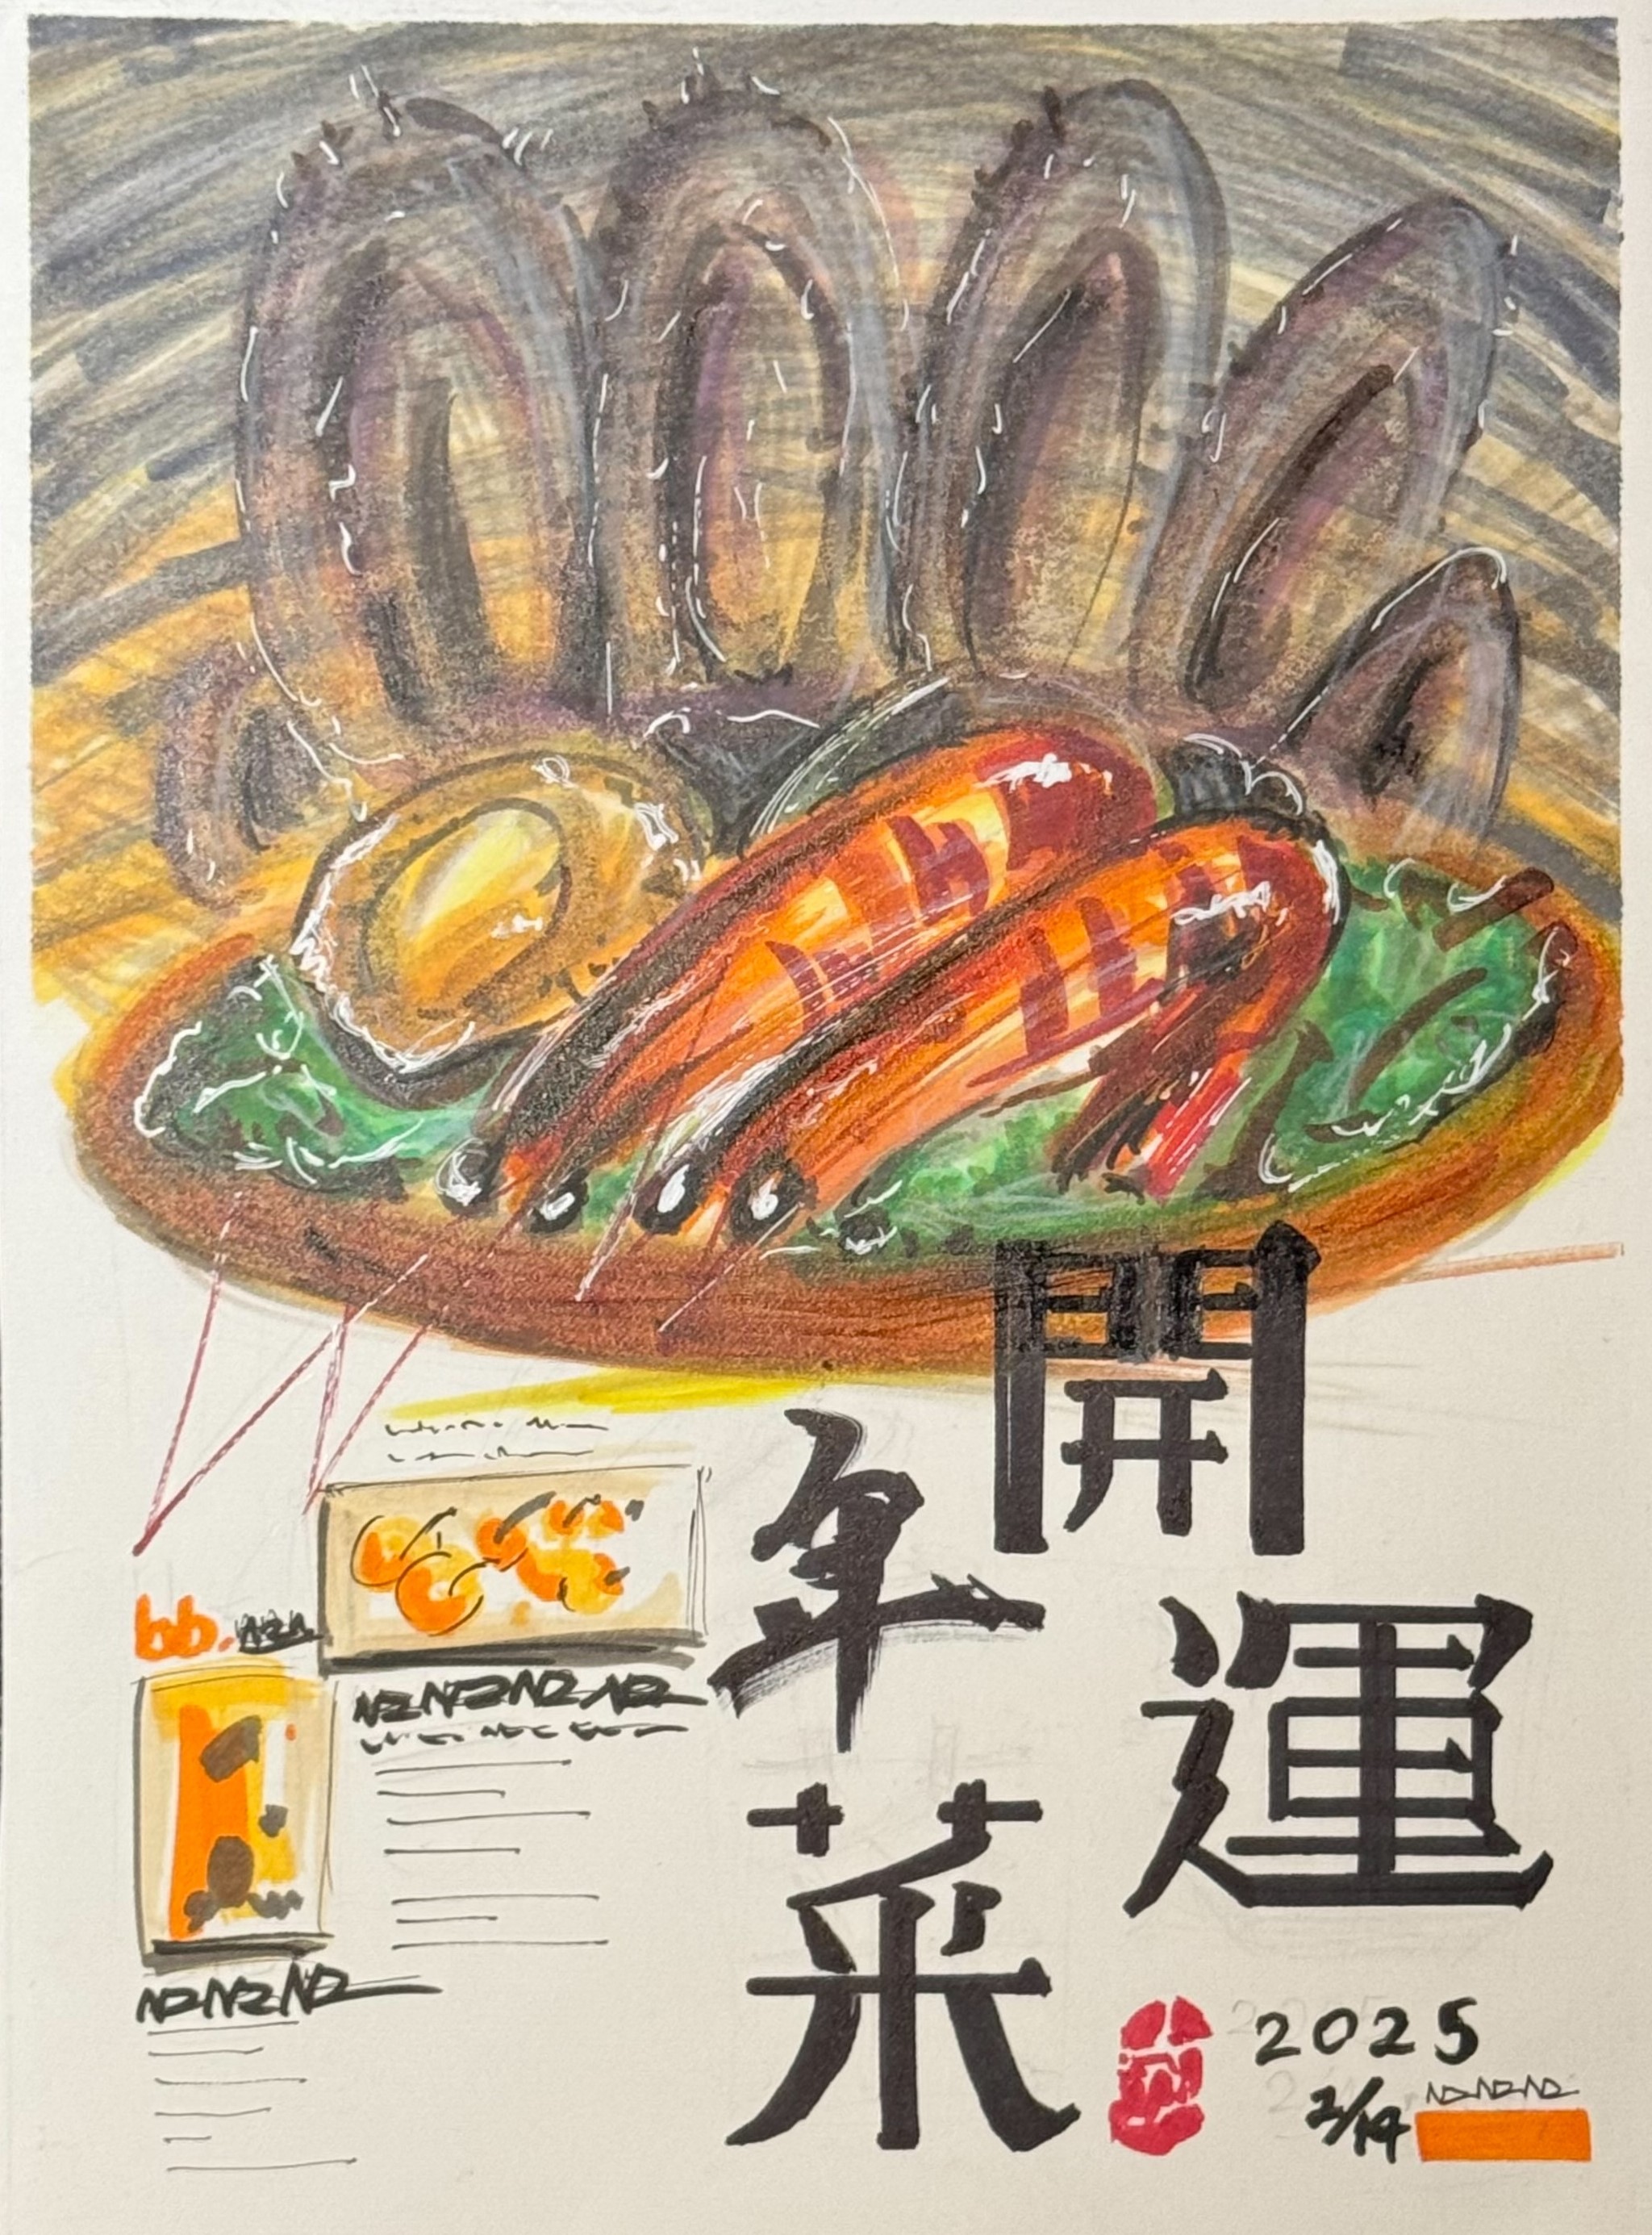 開運
年菜
bb.
2025
2/14